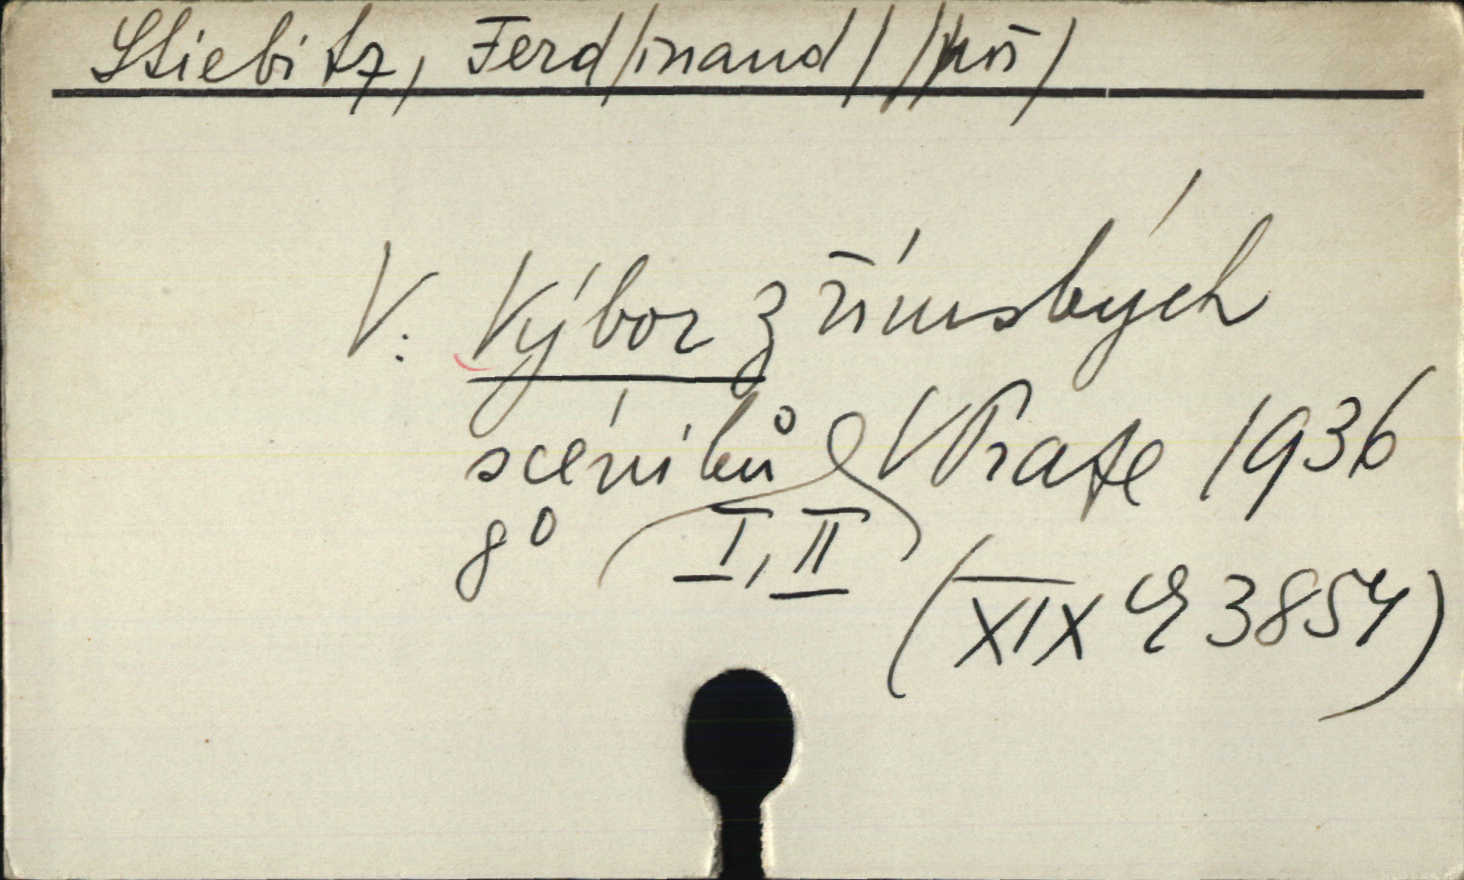 Stiebitz, Ferd/inand/ /poř/
V. Výbor z římských
scéniků V Praze 1936
8° I, II
(XIX E 3854)